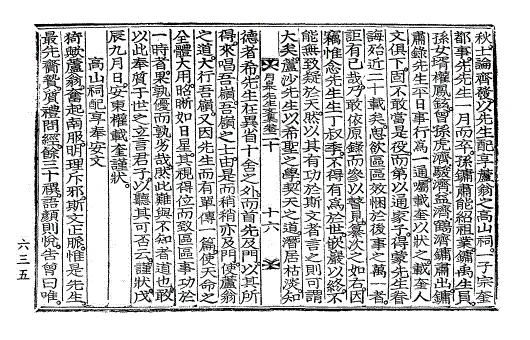 秋士論齊發以先生配享蘆翁之高山祠一子宗奎
都事先先生一月而卒孫鏞肅能紹祖業鏞禹生員
孫女壻權鳳銘曾孫虎濟駿濟益濟鷗濟鏞肅出鏞
肅錄先生平日事行爲一通囑載奎以狀之載奎人
文俱下固不敢當是役而第以通家子得蒙先生眷
誨殆近二十載矣思欲區區效悃於後事之萬一者
詎有已哉乃敢依原錄而參以瞽見纂次之如右因
竊惟念先生生丁叔季不得有爲於世嵌巖以終不
能無致疑於天然以其有功於斯文者言之則可謂
大矣蘆沙先生以希聖之學契天之道潛居枯淡知
月皐先生文集卷二十 十六
德者希先生在異省十舍之外而首先及門以其所
得來唱吾嶺吾嶺之士由是而稍稍亦及門使蘆翁
之道大行吾嶺又因先生而有單傳一篇使天命之
全體大用昭晣如日星其視得位而致區區事功於
一時者果孰優而孰劣哉然此難與不知者道也敢
以此奉質于世之立言君子以聽其可否云謹狀戊
辰九月日安東權載奎謹狀
高山祠配享奉安文
猗歟蘆翁奮起南服明理斥邪斯文正脈惟是先生
最先齎贄質禮問經餘三十禩語顏則悅告曾曰唯
六三五